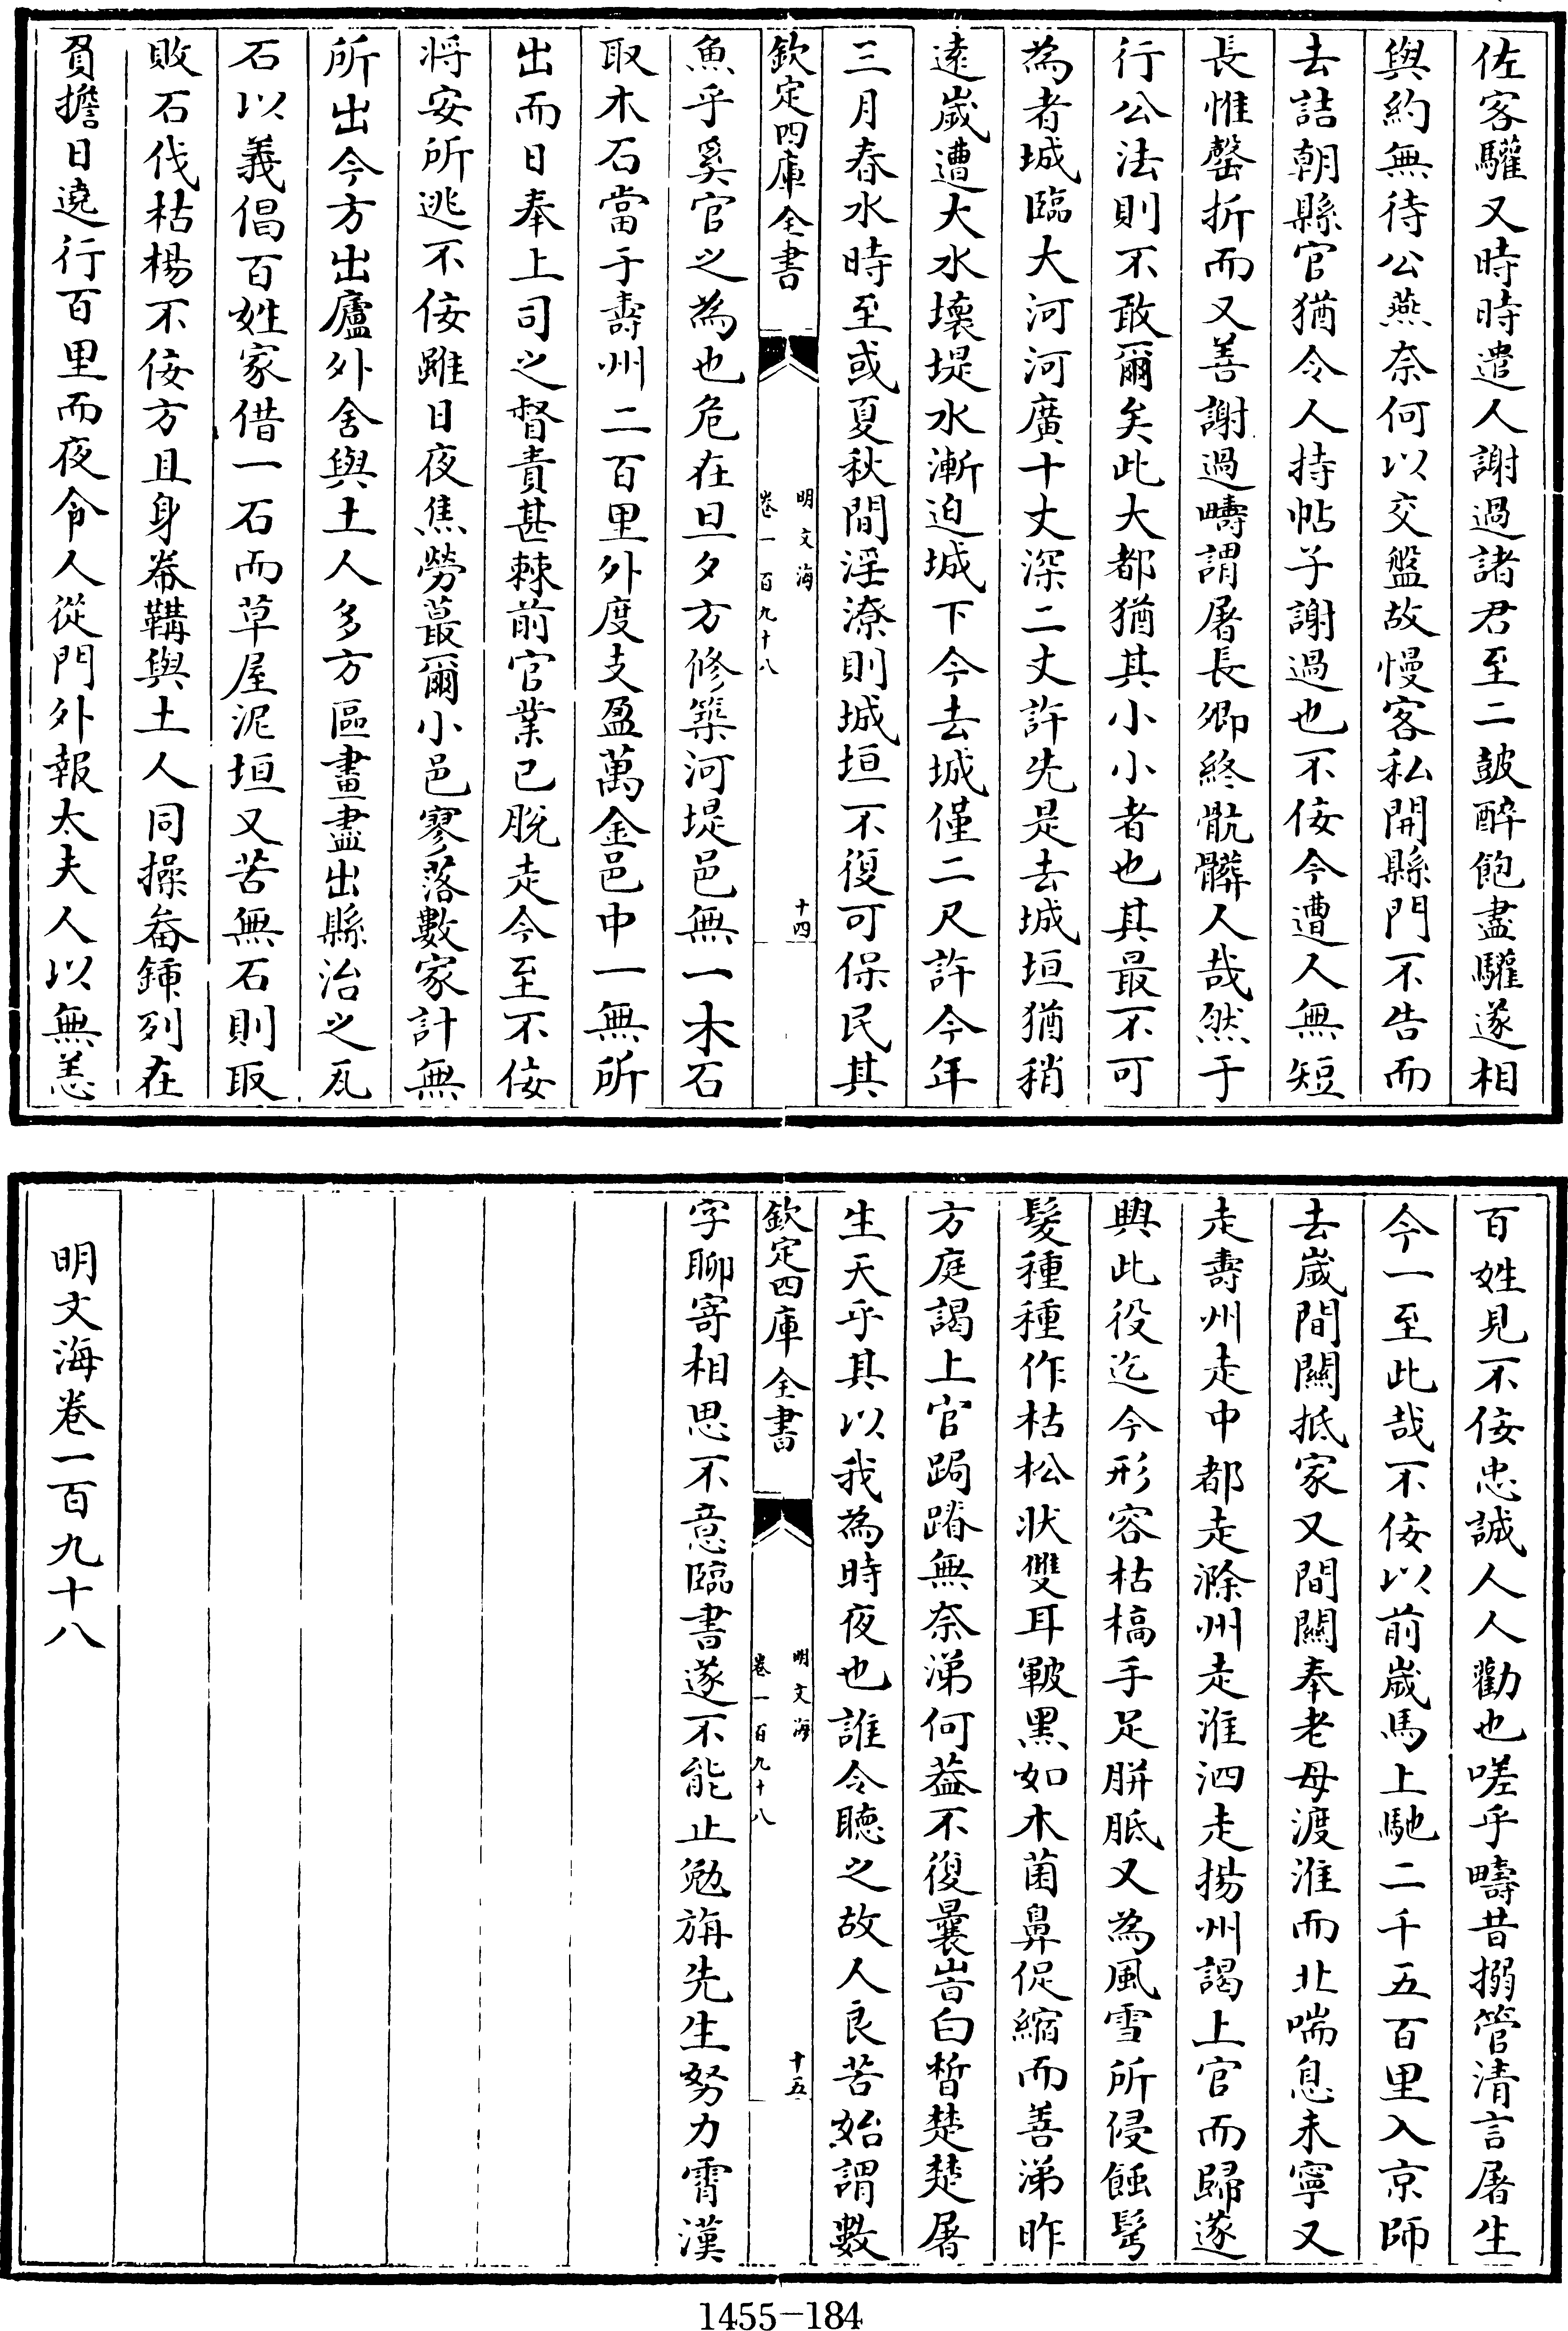 佐客驩又時時遣人謝過諸君至二皷醉飽盡驩遂相
與約無待公燕奈何以交盤故慢客私開縣門不告而
去詰朝縣官猶令人持帖子謝過也不佞今遭人無短
長惟罄折而又善謝過疇謂屠長卿終骯髒人哉然于
行公法則不敢爾矣此大都猶其小小者也其最不可
為者城臨大河河廣十丈深二丈許先是去城垣猶稍
遠歲遭大水壞堤水漸迫城下今去城僅二尺許今年
三月春水時至或夏秋間淫潦則城垣不復可保民其
欽定四庫全書
明文海
卷一百九十八
十四
魚乎奚官之為也危在旦夕方修築河堤邑無一木石
取木石當于壽州二百里外度支盈萬金邑中一無所
出而日奉上司之督責甚棘前官業已脫走今至不佞
将安所逃不佞雖日夜焦勞蕞爾小邑寥落數家計無
所出今方出廬外舍與土人多方區畫盡出縣治之瓦
石以義倡百姓家借一石而草屋泥垣又苦無石則取
敗石伐枯楊不佞方且身帣鞲與土人同操畚鍤列在
負擔日遶行百里而夜令人從門外報太夫人以無恙
百姓見不佞忠誠人人勸也嗟乎疇昔搦管清言屠生
今一至此哉不佞以前歲馬上馳二千五百里入京師
去歲間關抵家又間關奉老母渡淮而北喘息未寧又
走壽州走中都走滁州走淮泗走揚州謁上官而歸遂
興此役迄今形容枯槁手足胼胝又為風雪所侵蝕髩
髮種種作枯松状雙耳皸黑如木菌鼻促縮而善涕昨
方庭謁上官跼蹐無奈涕何葢不復曩岩白皙楚楚屠
生天乎其以我為時夜也誰令聽之故人良苦始謂數
欽定四庫全書
明文海
卷一百九十八
十五
字聊寄相思不意臨書遂不能止勉旃先生努力霄漢
明文海卷一百九十八
1455-184